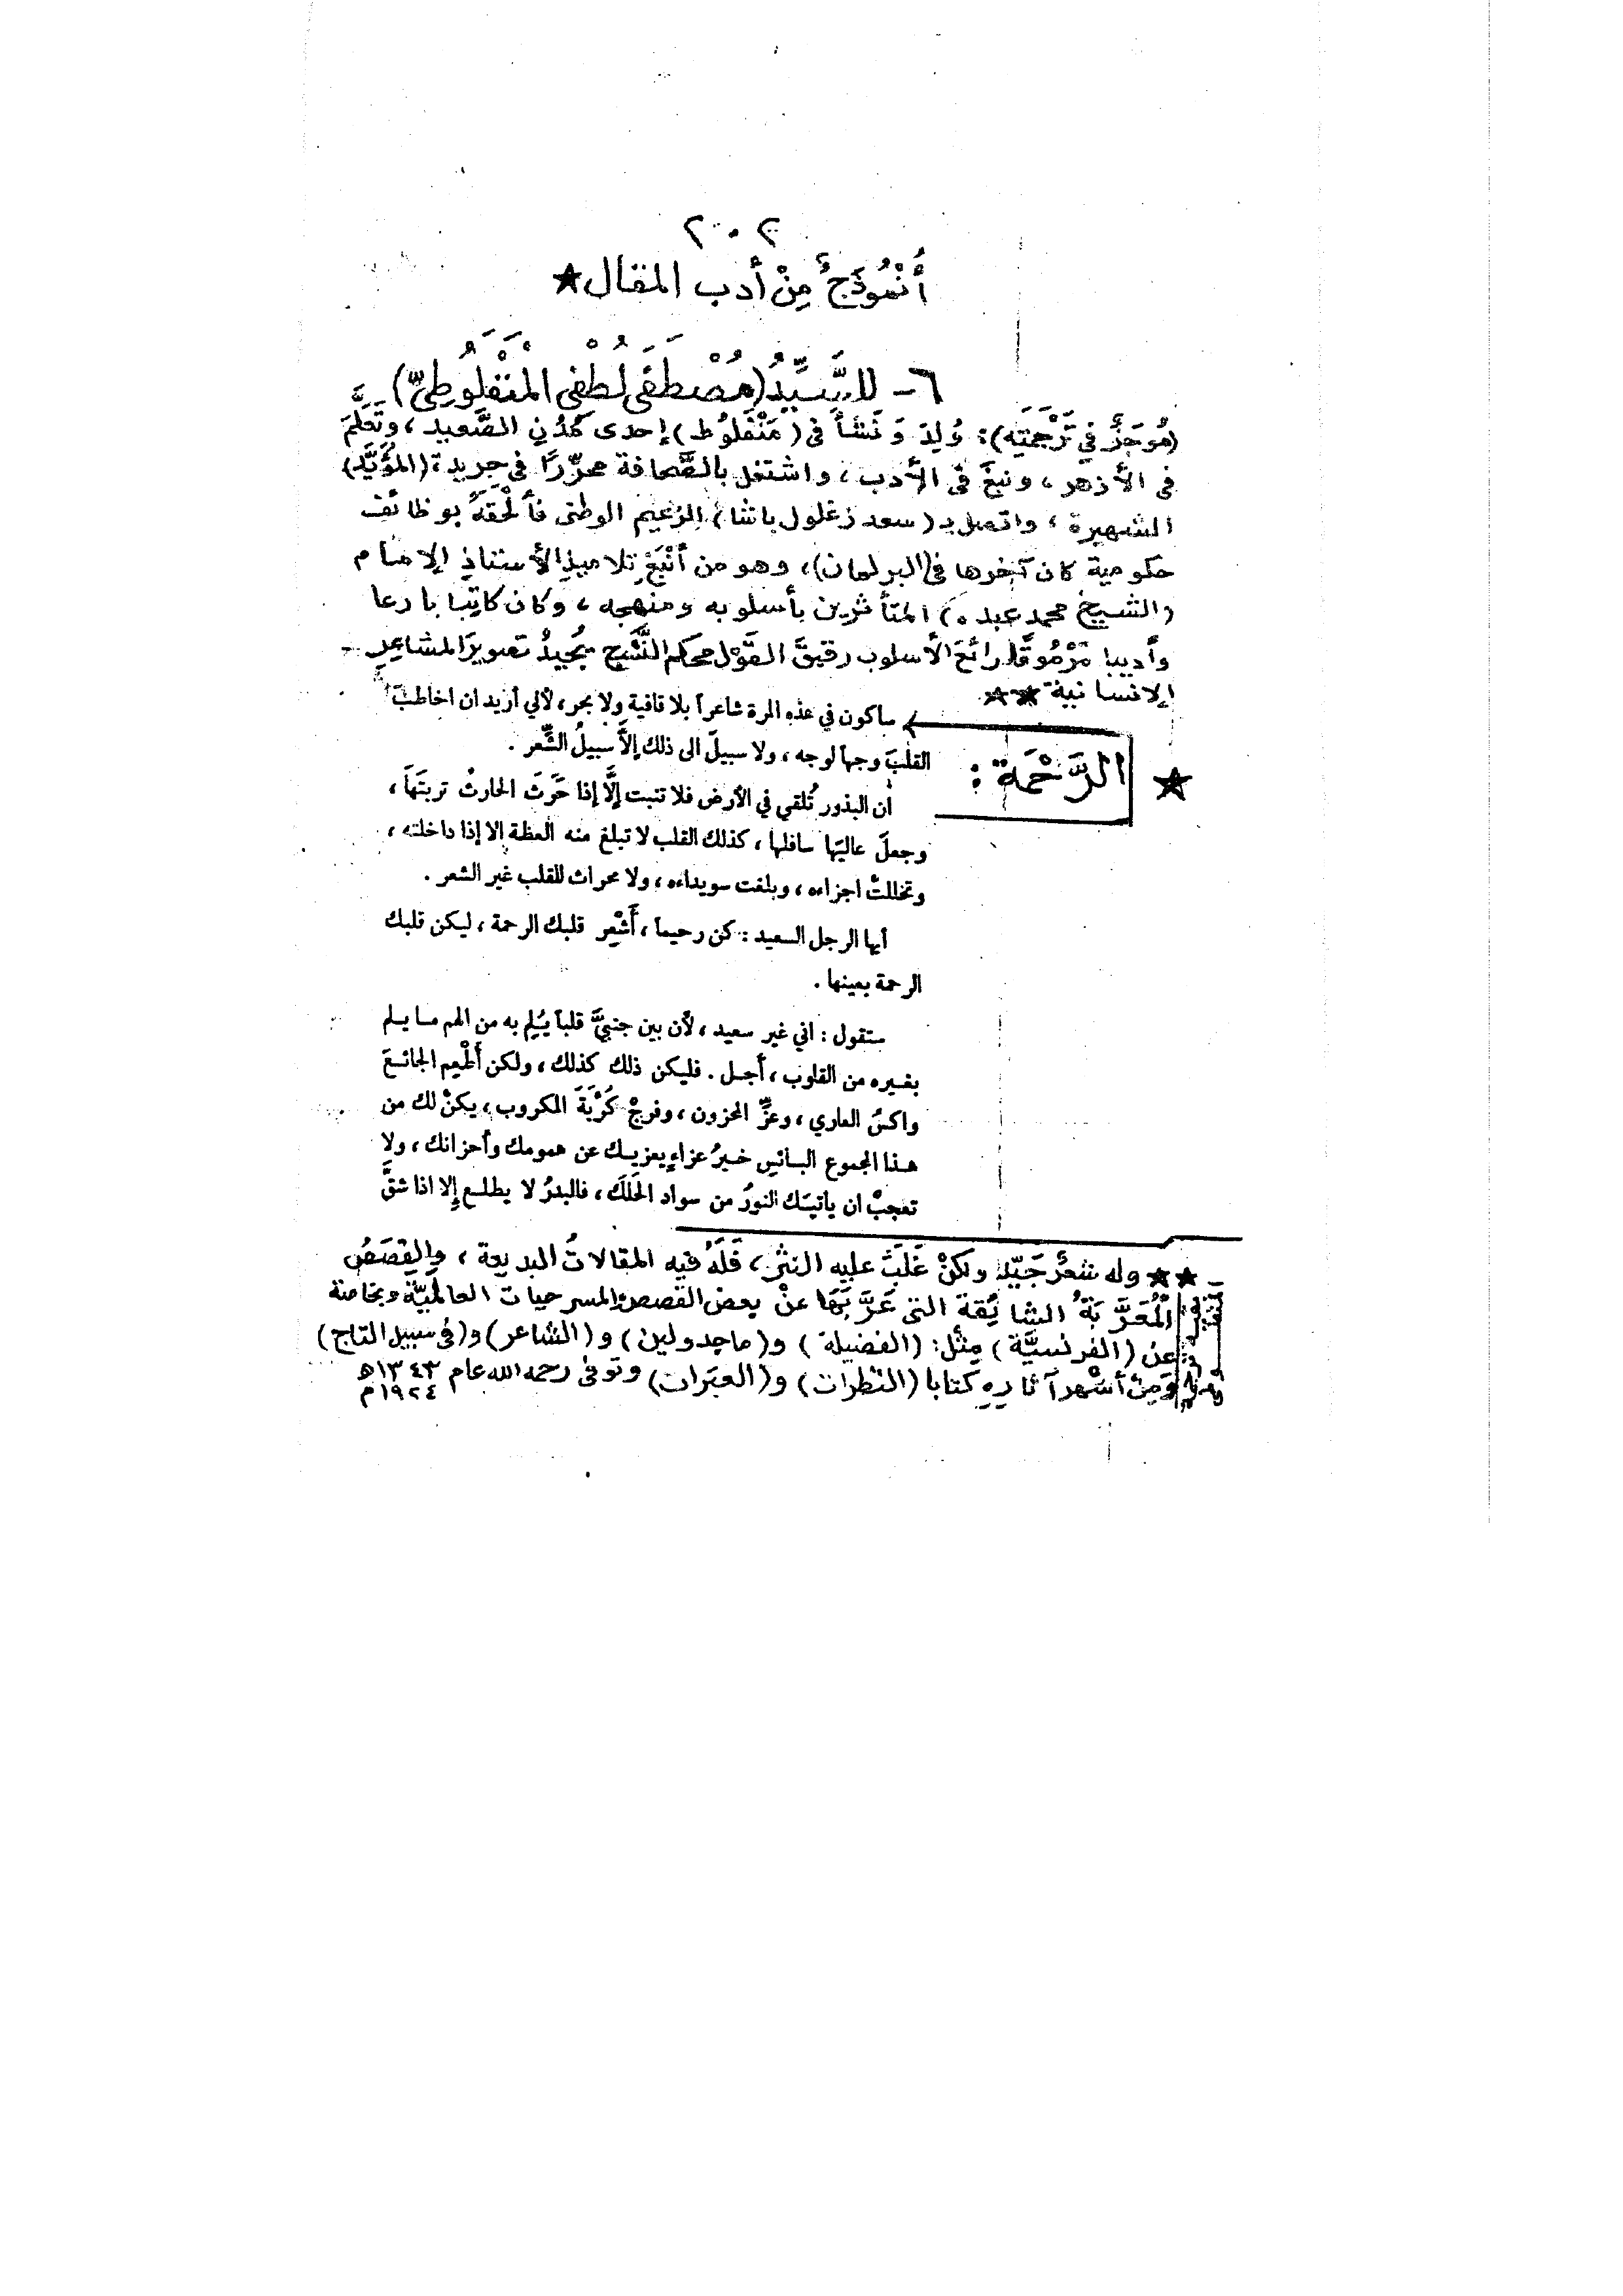 ٢٠٢
أُنْمُوذَجٌ مِنْ أدب المقال ★
٦- للسَّيِّدُ (مُصْطَفَى لُطْفِي المَنْفَلُوطِيّ)
(مُوجَزٌ في تَرْجَمَتِه): وُلِدَ وَنَشَأَ في (مَنْفَلُوط) إحدى مُدُنِ الصَّعيد، وتَعَلَّمَ
في الأزهر، ونبغَ في الأدب، واشتغل بالصَّحافة محرِّرًا في جريدة (المُؤَيَّد)
الشهيرة، واتصل بـ (سعد زغلول باشا) الزعيم الوطنى فألْحَقَهُ بوظائف
حكومية كان آخرها في (البرلمان)، وهو من أَنْبَغِ تلاميذ الأستاذِ الإمام
(الشيخ محمد عبده) المتأثرين بأسلوبه ومنهجه، وكان كاتبا بارعا
وأديبا مَرْمُوقًا رائعَ الأسلوب رقيقَ القَوْل محكم النَّسْج يُجيدُ تصويرَ المشاعِر
الإنسانية ★★
سأكون في هذه المرة شاعراً بلا قافية ولا بحر، لأني أريد ان اخاطبَ
★ الرَّحْمَة :
القلبَ وجهاً لوجه، ولا سبيلَ الى ذلك إلاَّ سبيلُ الشِّعر.
ان البذور تُلقي في الأرض فلا تنبت إلَّا إذا حَرَثَ الحارثُ تربتَهَا،
وجعلَ عاليَها سافلها، كذلك القلب لا تبلغ منه العظة إلا إذا داخلته،
وتخللتْ اجزاءه، وبلغت سويداءه، ولا محراث للقلب غير الشعر.
أيها الرجل السعيد : كن رحيماً، أَشْعِر قلبك الرحمة، ليكن قلبك
الرحمة بعينها.
ستقول : اني غير سعيد، لأن بين جنبيَّ قلباً يُلِم به من الهم ما يلم
بغيره من القلوب، أجل. فليكن ذلك كذلك، ولكن أَطْعِم الجائعَ
واكسُ العاري، وعزِّ المحزون، وفرجْ كُرْبَةَ المكروب، يكنْ لك من
هذا المجموع البائسِ خيرُ عزاءٍ يعزيك عن همومك وأحزانك، ولا
تعجبْ ان يأتيَك النورُ من سواد الحَلَك، فالبدرُ لا يطلع إلا اذا شقَّ
- ★★ وله شعرٌ جَيِّد ولكنْ غَلَبَ عليه النثر، فَلَهُ فيه المقالاتُ البديعة، والقِصَصُ
المُعَرَّبَةُ الشائِقة التى عَرَّبَهَا عنْ بعض القصص والمسرحيات العالمِيَّة وبخاصة
عن (الفرنسيَّة) مِثْل: (الفضيلة) و (ماجدولين) و (الشاعر) و (في سبيل التاج)
وَمِنْ أشْهر آثارِهِ كتابا (النَّظرات) و (العبَرات) وتوفي رحمه الله عام ١٣٤٣هـ
١٩٢٤م